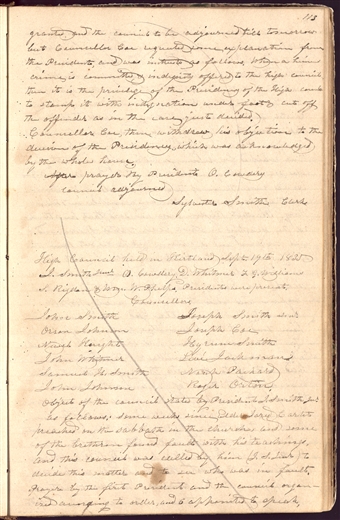 113
granted and the council to be adjourned till tomorrow
but Councellor Coe requested some explanation from
the Presidents and was as follows, When a
crime is committed & indignity offered to the high council
then it is the privilege of the Presidency of the High Council
to stamp it with indignation under foot & cut off
the offender as in the case just decided.
Councellor Coe, then withdrew his objection to the
decision of the Presidency, which was acknowledged
by the whole house,
After prayer by President O. Cowdery
council adjourned
Sylvester Smith Clerk
High Council held in Kirtland Sept 19th 1835
J. Smith Junr O. Cowdery D. Whitmer F. G. Williams
S. Rigdon & W. W. Phelps, Presidents were present
Councellors
John Smith Joseph Smith
Orson Johnson Joseph Coe
Newel Knight Hyrum Smith
John Whitmer Levi Jackman
Samuel H. Smith Noah Packard
John Johnson Roger Orton,
Object of the council stated by President J. Smith, Jr
as follows: some weeks since Elder Jared Carter
preached on the sabbath in the church and some
of the brethren found fault with his teachings,
and this council was called by him (J. S. Jr.) to
decide this matter and see who was in fault,
Prayer by the first President and the council organ-
ized according to order, and appointed to speak,